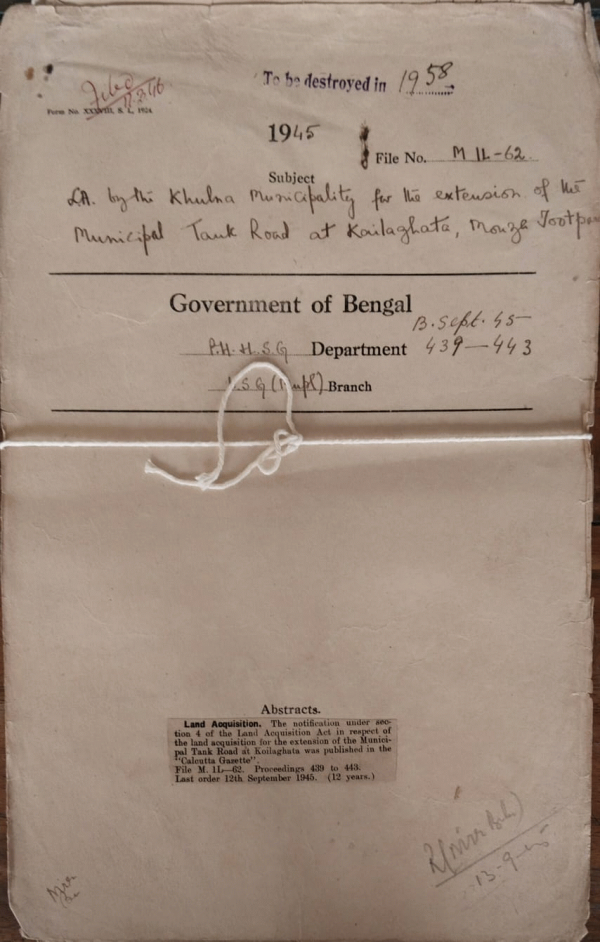 To be destroyed in 1958
Form No. XXXVIII, S. C., 1924
1945
File No. M 1L-62.
Subject
LA. by the Khulna Municipality for the extension of the
Municipal Tank Road at Kailaghata, Mouza
Government of Bengal
B. Sept. 45
P.H. H. S.G Department 439-443
Branch
Abstracts.
Land Acquisition. The notification under sec-
tion 4 of the Land Acquisition Act in respect of
the land acquisition for the extension of the Munici-
pal Tank Road at Koilaghata was published in the
"Calcutta Gazette".
File M. 1L—62. Proceedings 439 to 443.
Last order 12th September 1945. (12 years.)